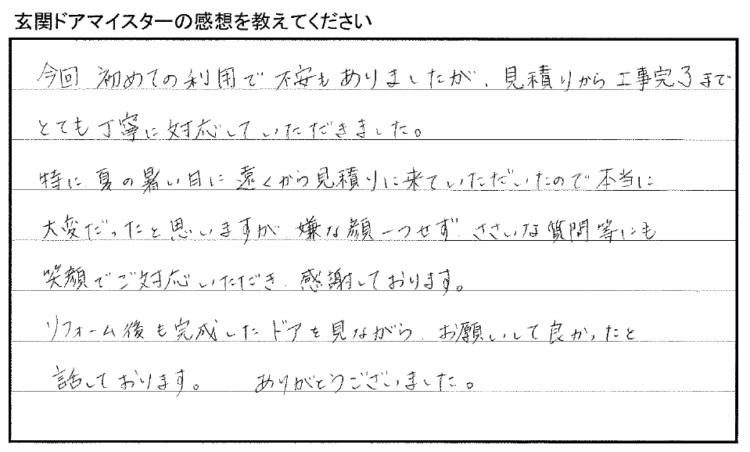 玄関ドアマイスターの感想を教えてください
今回 初めての利用で 不安もありましたが、見積りから工事完了まで
とても丁寧に対応していただきました。
特に 夏の暑い日に 遠くから見積りに来ていただいたので 本当に
大変だったと思いますが 嫌な顔一つせず ささいな質問等にも
笑顔でご対応いただき、感謝しております。
リフォーム後も完成したドアを見ながら、お願いして良かったと
話しております。 ありがとうございました。